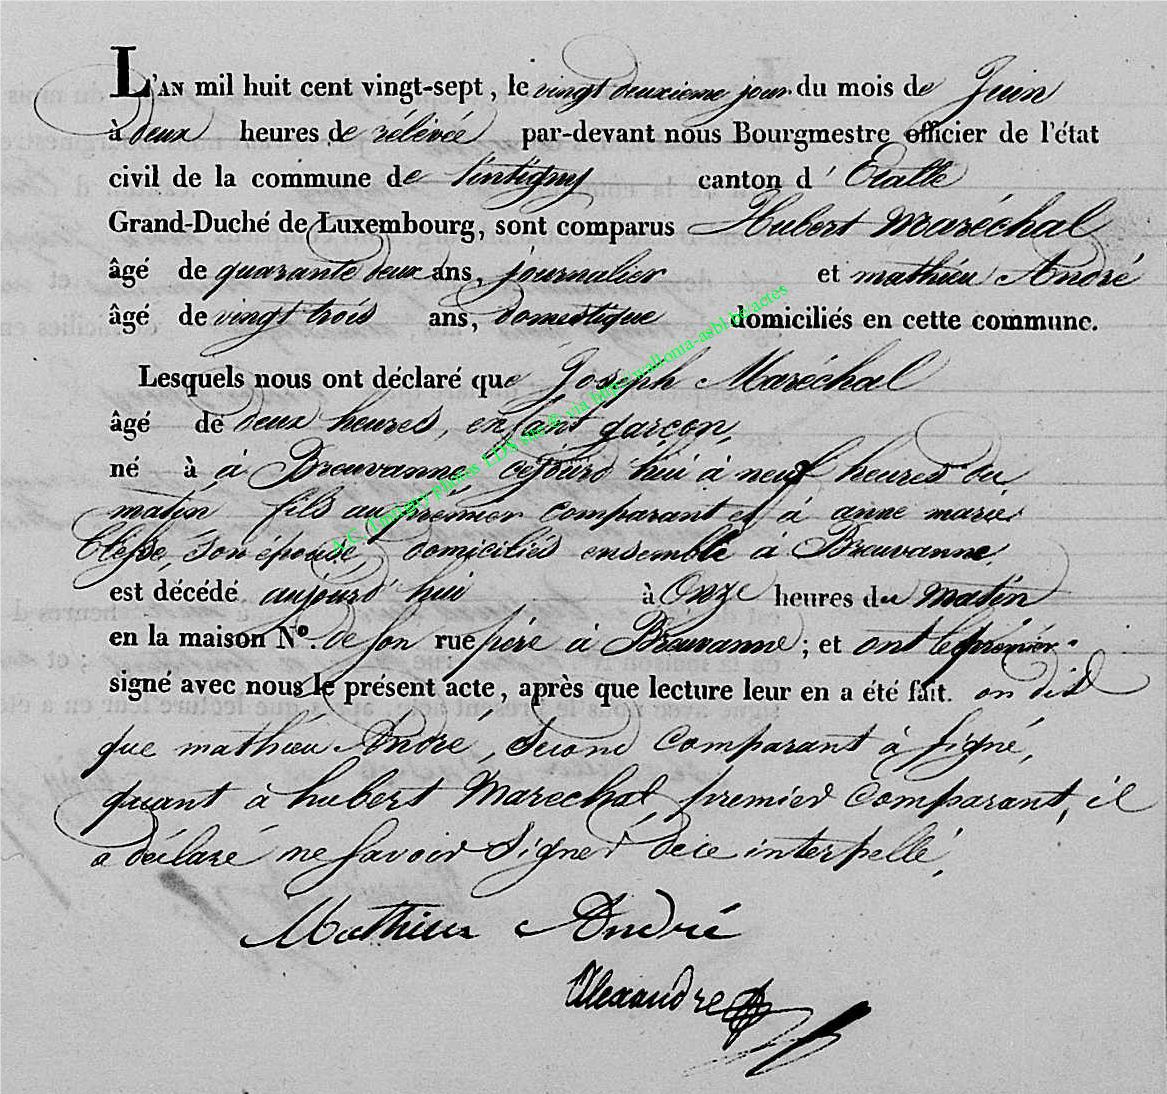 L'AN mil huit cent vingt-sept, le vingt deuxieme jour du mois de Juin
à deux heures de rélévée par-devant nous Bourgmestre officier de l'état
civil de la commune de tintigny canton d' Etalle
Grand-Duché de Luxembourg, sont comparus Hubert Maréchal
âgé de quarante deux ans, journalier et mathieu André
âgé de vingt trois ans, domestique domiciliés en cette commune.
Lesquels nous ont déclaré que Joseph Maréchal
âgé de deux heures, enfant garçon,
né à à Breuvanne, cejourd hui à neuf heures du
matin fils au premier comparant et à anne marie
Clesse, son épouse, domiciliés ensemble à Breuvanne,
est décédé aujourd hui à Onze heures du matin
en la maison N°. de son rue père à Breuvanne ; et ont le premier
signé avec nous le présent acte, après que lecture leur en a été fait. on dit
que mathieu André, second comparant à signé,
quant à hubert Marechal premier comparant, il
a déclaré ne savoir signer dece interpellé,
Mathieu André
Alexandre
A.G. (Tintigny) Photos LDS site © via http://wallonia-asbl.be/actes